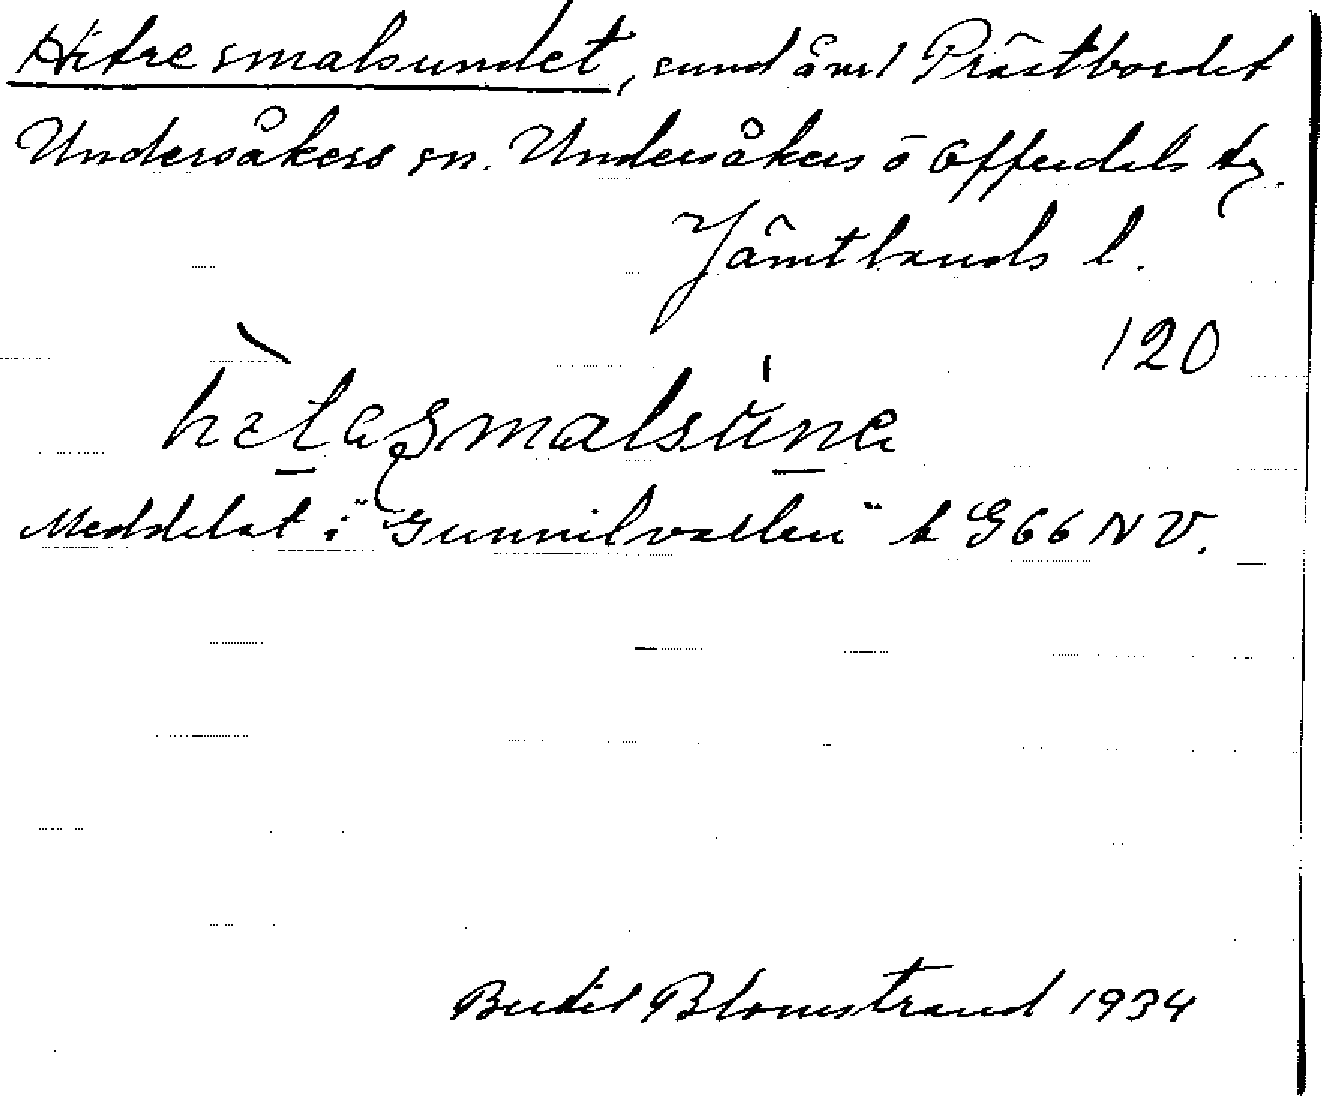 Hitre smalsundet, sund åml Prästbordet
Undersåkers sn. Undersåkers o Offerdals tg.
Jämtlands l.
120
hetasmalsúne
Meddelat i "Gunnilvallen" t G66 NV.
Bertil Blomstrand 1934